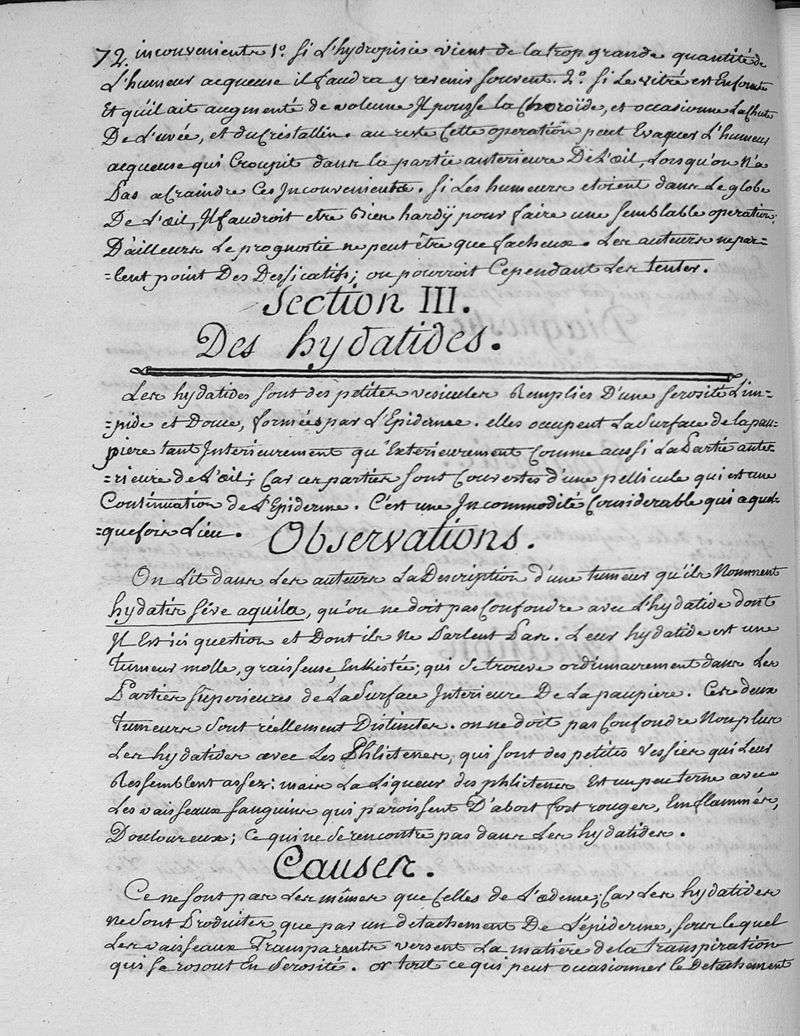 72. inconvenients 1.° si L'hydropisie vient de la trop grande quantité de
L'humeur acqueuse il faudra y revenir souvent. 2.° si Le vitré est Enfonté
Et qu'il ait augmenté de volume Il pousse la Choroïde, et occasionne La chute
De L'uvée, et du Cristallin. au reste Cette operation peut Evaquer L'humeur
acqueuse qui Croupit dans la partie anterieure De L'œil, Lorsqu'on N'a
Pas a Craindre Ces Inconvenients. si Les humeurs etoient dans Le globe
De L'œil, Il faudroit etre Bien hardÿ pour faire une semblable operation;
D'ailleurs Le prognostic ne peut être que facheux. Les auteurs ne par=
=lent point Des Dessicatifs; on pourroit Cependant Les tenter.
Section III.
Des hydatides.
Les hydatides sont des petites vesicules Remplies D'une serosité Lim=
=pide et Douce, formées par L'Epiderme. elles occupent La surface de la pau=
piere tant Interieurement qu'Exterieurement Comme aussi La Partie ante=
=rieure de L'œil; Car ces parties sont Couvertes d'une pellicule qui est une
Continuation de L'Epiderme. C'est une Incommodité Considerable qui a quel=
=quefois Lieu.
Observations.
On Lit dans Les auteurs La Description d'une tumeur qu'ils Nomment
hydatis séve aquila, qu'on ne doit pas Confondre avec L'hydatide dont
Il Est ici question et Dont ils Ne Parlent Pas. Leur hydatide est une
tumeur molle, graisseuse, Enkistée, qui se trouve ordinairement dans Les
Parties superieures de La surface Interieure De La paupiere. Ces deux
tumeurs sont réellement Distinctes. on ne doit pas Confondre Non plus
Les hydatides avec Les Phlictenes, qui sont des petites vessies qui Leur
Ressemblent assez: mais La Liqueur des phlictenes Est un peu terne avec
Les vaisseaux sanguins qui paroissent D'abort fort rouges, Enflammés,
Douloureux; Ce qui ne se rencontre pas dans Les hydatides.
Causes.
Ce ne sont pas Les mêmes que Celles de L'œdeme; Car Les hydatides
ne sont Produites que par un detachement De L'épiderme, sous lequel
Les vaisseaux Transparents versent La matiere de la transpiration
qui se resout En serosité. or tout ce qui peut occasionner le detachement